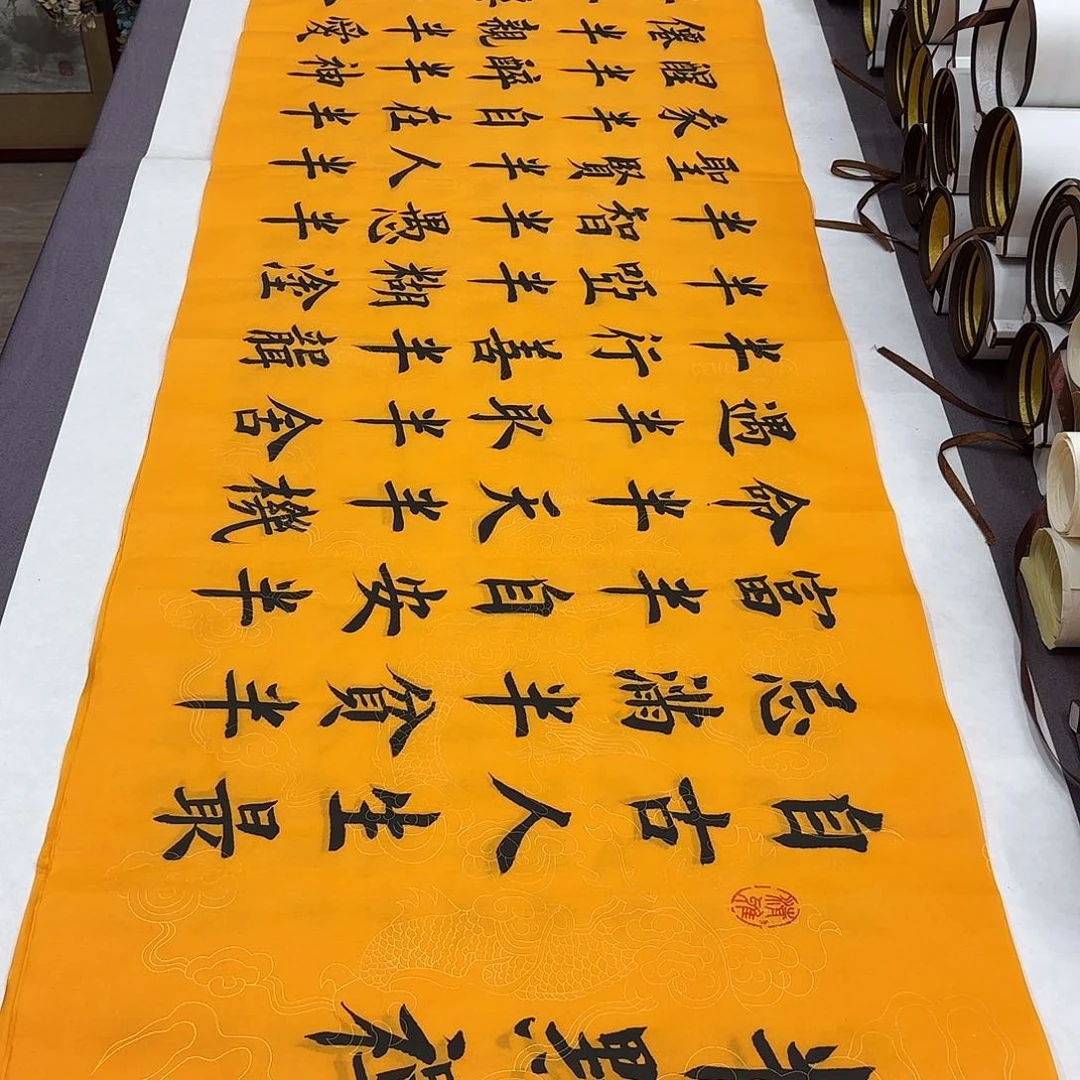 自古人生最
忌滿半貧半
富半自安半
命半天半機
遇半取半舍
半行善半聾
半啞半糊塗
半智半愚半
聖賢半人半
家半自在半
醒半醉半神
僊半親半愛